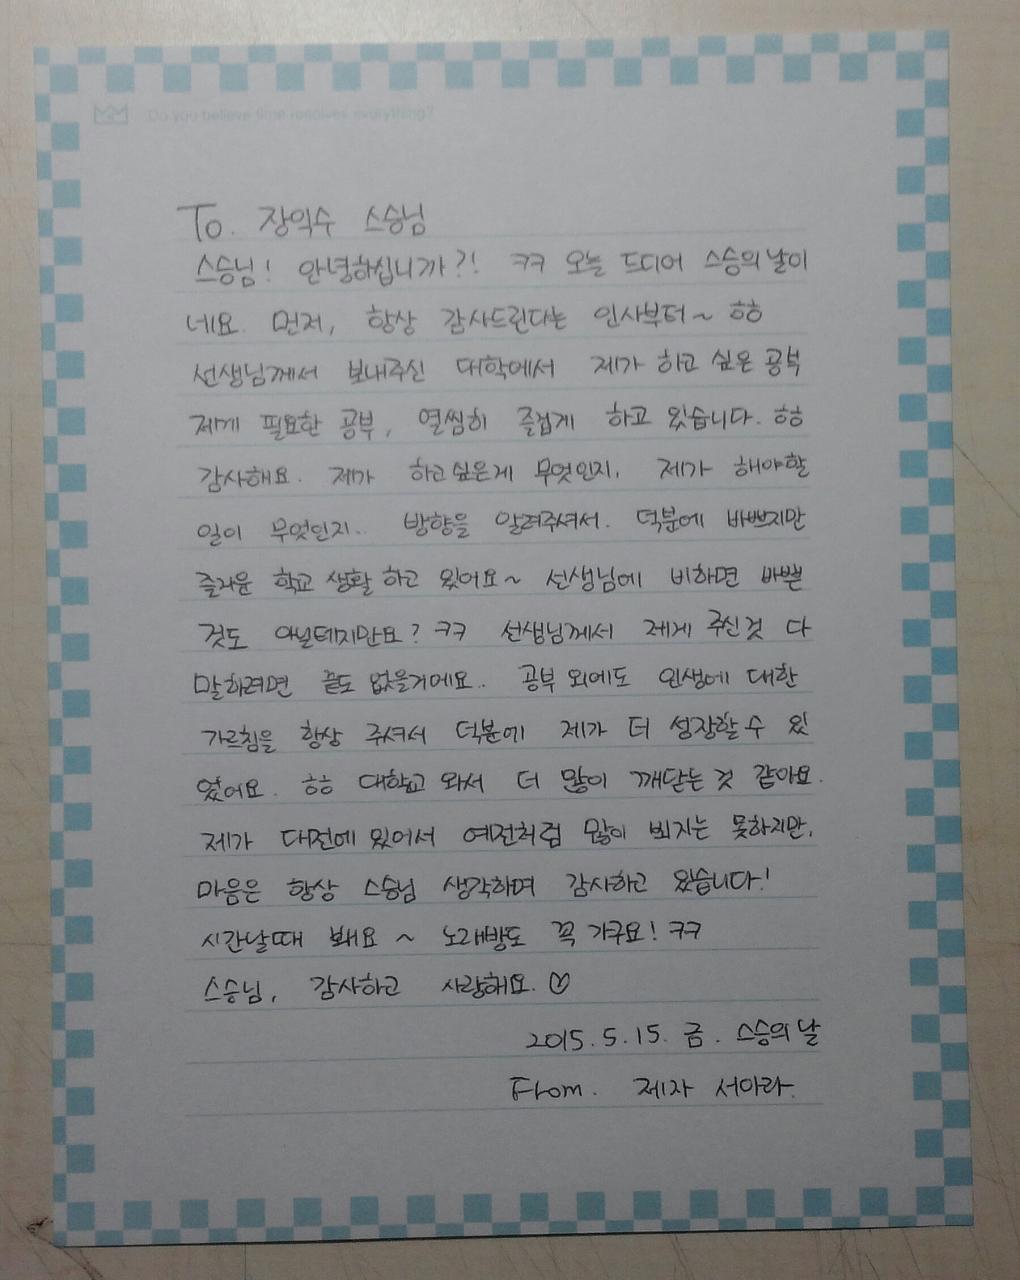 Do you believe time resolves everything?
To. 장익수 스승님
스승님! 안녕하십니까?! ㅋㅋ 오늘 드디어 스승의날이
네요. 먼저, 항상 감사드린다는 인사부터~ ㅎㅎ
선생님께서 보내주신 대학에서 제가 하고 싶은 공부
제게 필요한 공부, 열씸히 즐겁게 하고 있습니다. ㅎㅎ
감사해요. 제가 하고싶은게 무엇인지, 제가 해야할
일이 무엇인지.. 방향을 알려주셔서. 덕분에 바쁘지만
즐거운 학교 생활 하고 있어요~ 선생님에 비하면 바쁠
것도 아닐테지만요? ㅋㅋ 선생님께서 제게 주신것 다
말하려면 끝도 없을거에요.. 공부 외에도 인생에 대한
가르침을 항상 주셔서 덕분에 제가 더 성장할 수 있
었어요. ㅎㅎ 대학교 와서 더 많이 깨닫는 것 같아요.
제가 대전에 있어서 예전처럼 많이 뵈지는 못하지만,
마음은 항상 스승님 생각하며 감사하고 있습니다!
시간날때 봬요~ 노래방도 꼭 가구요! ㅋㅋ
스승님, 감사하고 사랑해요. ♡
2015. 5. 15. 금. 스승의 날
From. 제자 서아라.